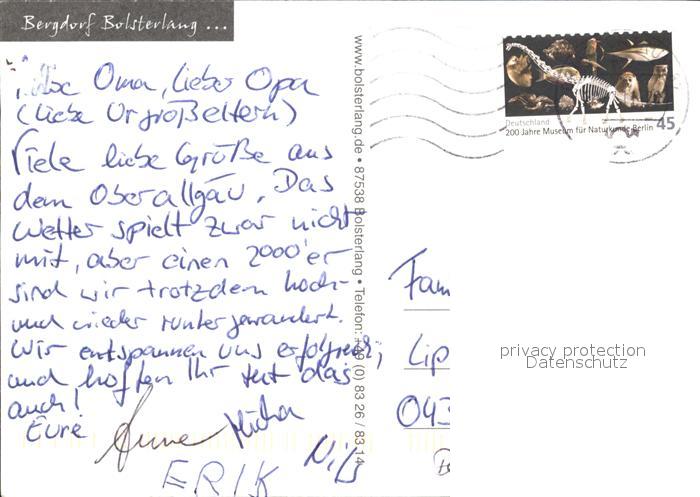 Bergdorf Bolsterlang ...
Liebe Oma, lieber Opa
(Liebe Urgroßeltern)
Viele liebe Grüße aus
dem Oberallgäu. Das
Wetter spielt zwar nicht
mit, aber einen 2000'er
sind wir trotzdem hoch-
und wieder runter gewandert.
Wir entspannen uns erfolgreich,
und hoffen Ihr tut das
auch!
Eure Anne Micha
ERIK Nils
www.bolsterlang.de • 87538 Bolsterlang • Telefon: +49 (0) 83 26 / 83 14
Deutschland 45
200 Jahre Museum für Naturkunde Berlin
Fam
Lip
043
privacy protection
Datenschutz